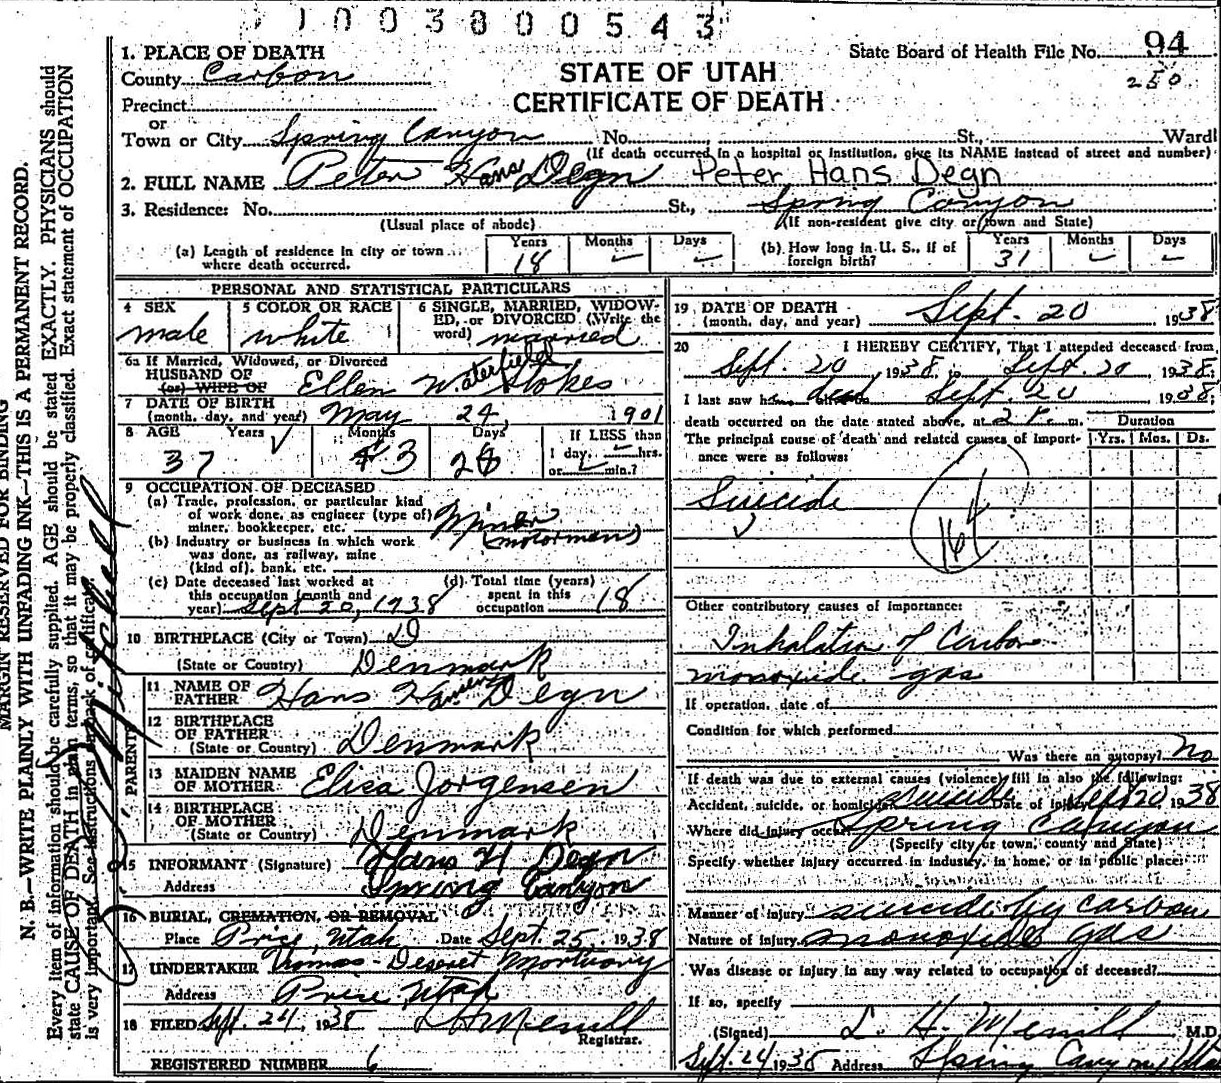 1003800543
1. PLACE OF DEATH
County Carbon
Precinct
or
Town or City Spring Canyon No. St., Ward
(If death occurred in a hospital or institution, give its NAME instead of street and number)
State Board of Health File No. 94
250
STATE OF UTAH
CERTIFICATE OF DEATH
2. FULL NAME Peter Hans Degn Peter Hans Degn
3. Residence: No. St., Spring Canyon
(Usual place of abode) (If non-resident give city or town and State)
(a) Length of residence in city or town where death occurred. Years 18 Months – Days –
(b) How long in U. S., if of foreign birth? Years 31 Months – Days –
PERSONAL AND STATISTICAL PARTICULARS
4 SEX male
5 COLOR OR RACE white
6 SINGLE, MARRIED, WIDOWED, or DIVORCED (Write the word) married
6a If Married, Widowed, or Divorced
HUSBAND OF
(or) WIFE OF Ellen Waterfield Stokes
7 DATE OF BIRTH
(month, day, and year) May 24, 1901
8 AGE Years 37 Months 3 Days If LESS than
1 day, hrs.
or min.?
9 OCCUPATION OF DECEASED
(a) Trade, profession, or particular kind
of work done, as engineer (type of)
miner, bookkeeper, etc. Miner
(motorman)
(b) Industry or business in which work
was done, as railway, mine
(kind of), bank, etc.
(c) Date deceased last worked at
this occupation (month and
year) Sept 20, 1938
(d) Total time (years)
spent in this
occupation 18
10 BIRTHPLACE (City or Town)
(State or Country) Denmark
PARENTS
11 NAME OF
FATHER Hans Hansen Degn
12 BIRTHPLACE
OF FATHER
(State or Country) Denmark
13 MAIDEN NAME
OF MOTHER Elisa Jorgensen
14 BIRTHPLACE
OF MOTHER
(State or Country) Denmark
15 INFORMANT (Signature) Hans H Degn
Address Spring Canyon
16 BURIAL, CREMATION, OR REMOVAL
Place Price, Utah Date Sept. 25, 1938
17 UNDERTAKER Thomas-Deseret Mortuary
Address Price Utah
18 FILED Sept. 24, 1938 L H Merrill
Registrar.
REGISTERED NUMBER 6
19 DATE OF DEATH
(month, day, and year) Sept. 20 1938
20 I HEREBY CERTIFY, That I attended deceased from
Sept. 20, 1938, to Sept. 20 1938.
I last saw h dead Sept. 20 1938;
death occurred on the date stated above, at 2 P. m.
The principal cause of death and related causes of importance were as follows:
Duration
Yrs. Mos. Ds.
Suicide
Other contributory causes of importance:
Inhalation of Carbon
monoxide gas
If operation, date of
Condition for which performed
Was there an autopsy? No
If death was due to external causes (violence) fill in also the following:
Accident, suicide, or homicide suicide Date of injury Sept 20 1938
Where did injury occur Spring Canyon
(Specify city or town, county and State)
Specify whether injury occurred in industry, in home, or in public place:
Manner of injury suicide by carbon
Nature of injury monoxide gas
Was disease or injury in any way related to occupation of deceased?
If so, specify
(Signed) L. H. Merrill M.D.
Sept. 24 1938 Address Spring Canyon, Utah
MARGIN RESERVED FOR BINDING
N. B.—WRITE PLAINLY WITH UNFADING INK—THIS IS A PERMANENT RECORD.
Every item of information should be carefully supplied. AGE should be stated EXACTLY. PHYSICIANS should
state CAUSE OF DEATH in plain terms, so that it may be properly classified. Exact statement of OCCUPATION
is very important. See instructions on back of certificate.